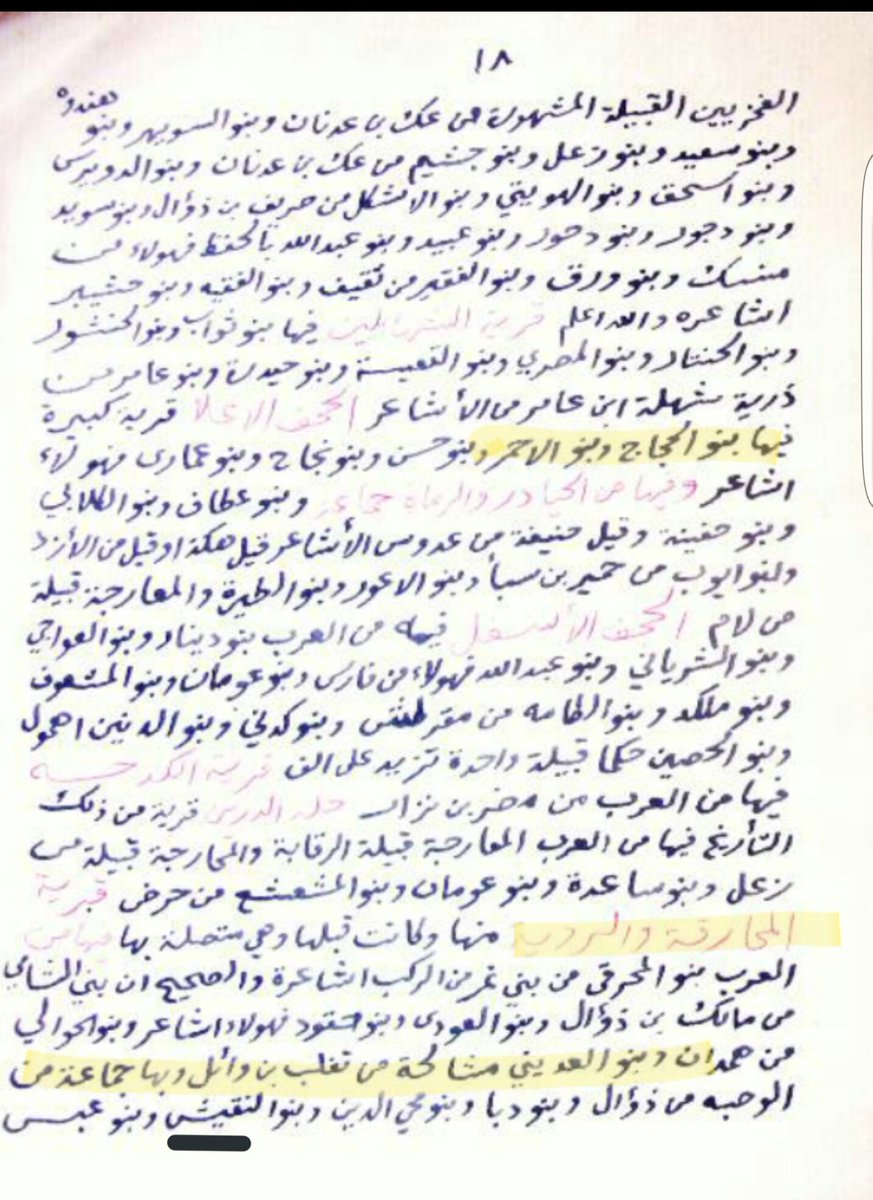 ١٨
الفخريين القبيلة المشهورة من عك بن عدنان وبنو السويهر وبنو هندوه
وبنو سعيد وبنو زعل وبنو جشيم من عك بن عدنان وبنو الدويرس
وبنو اسحق وبنو الهويتي وبنو الاشكل من صريف بن ذؤال وبنو سويد
وبنو دجور وبنو دحود وبنو عبيد وبنو عبدالله بالحفظ فهولاء من
منسك وبنو ورق وبنو الفقير من ثقيف وبنو الفقيه وبنو حشيبر
اشاعره والله اعلم قرية فيها بنو ثواب وبنو الحنشول
وبنو الحنتار وبنو المصري وبنو القعيسة وبنو حيدرة وبنو عامر من
ذرية شهلة ابن عامر من الأشاعر الجحف الاعلا قرية كبيرة
فيها بنو الحجاج وبنو الاحمر وبنو حسن وبنو نجاح وبنو عمارى فهولاء
اشاعر وفيها من الحيادر والرماة جماعة وبنو عطاف وبنو الكلابي
وبنو حفينة وقيل حنيفة من عدوس الأشاعر قيل هكذا وقيل من الأزد
وبنو ايوب من حمير بن سبأ وبنو الاعور وبنو الطيرة والمعارجة قبيلة
من لام الجحف الأسفل فيه من العرب بنو دينار وبنو العواجي
وبنو الشرياني وبنو عبدالله فهولاء من فارس وبنو عومان وبنو المشعوف
وبنو ملكد وبنو الطامه من وبنو كدني وبنو الدنين اهمول
وبنو الحصين حكما قبيلة واحدة تزيد على الف قرية الكدحة
فيها من العرب من مضر بن نزار حلة الدرس قرية من ذلك
التأريخ فيها من العرب المعارجة قبيلة الرقابة والمحارجة قبيلة من
زعل وبنو ساعدة وبنو عومان وبنو المشعشع من حرض قرية
المحارقة منها وكانت قبلها وهي متصلة بها فيها من
العرب بنو المحرقي من بني غر من الركب اشاعرة والصحيح ان بني الشامي
من مالك بن ذؤال وبنو العودى وبنو حقود فهولاء اشاعر وبنو الحوالي
من همدان وبنو العديني مشالحة من تغلب بن وائل وبها جماعة من
الوحبه من ذؤال وبنو دبا وبنو محي الدين وبنو النقيش وبنو عبس